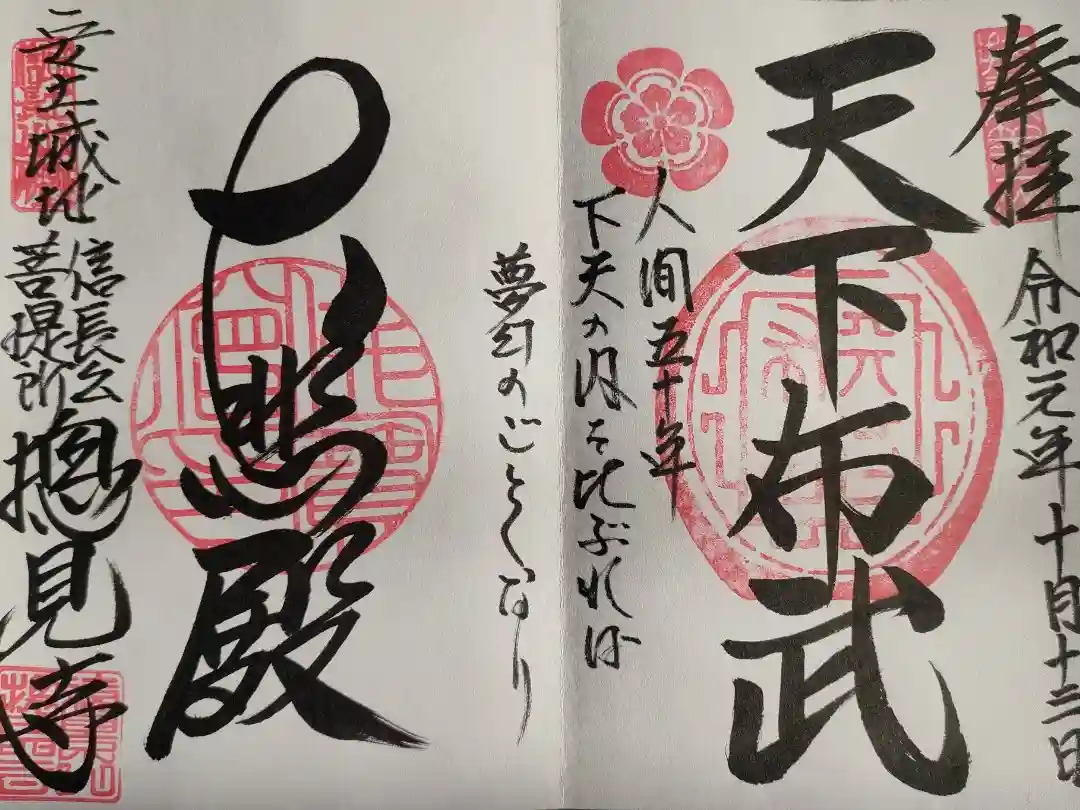 奉拝
令和元年十月十三日
天下布武
人間五十年
下天の内を比ぶれば
夢幻のごとくなり
大悲殿
安土城址
信長公
菩提所
摠見寺